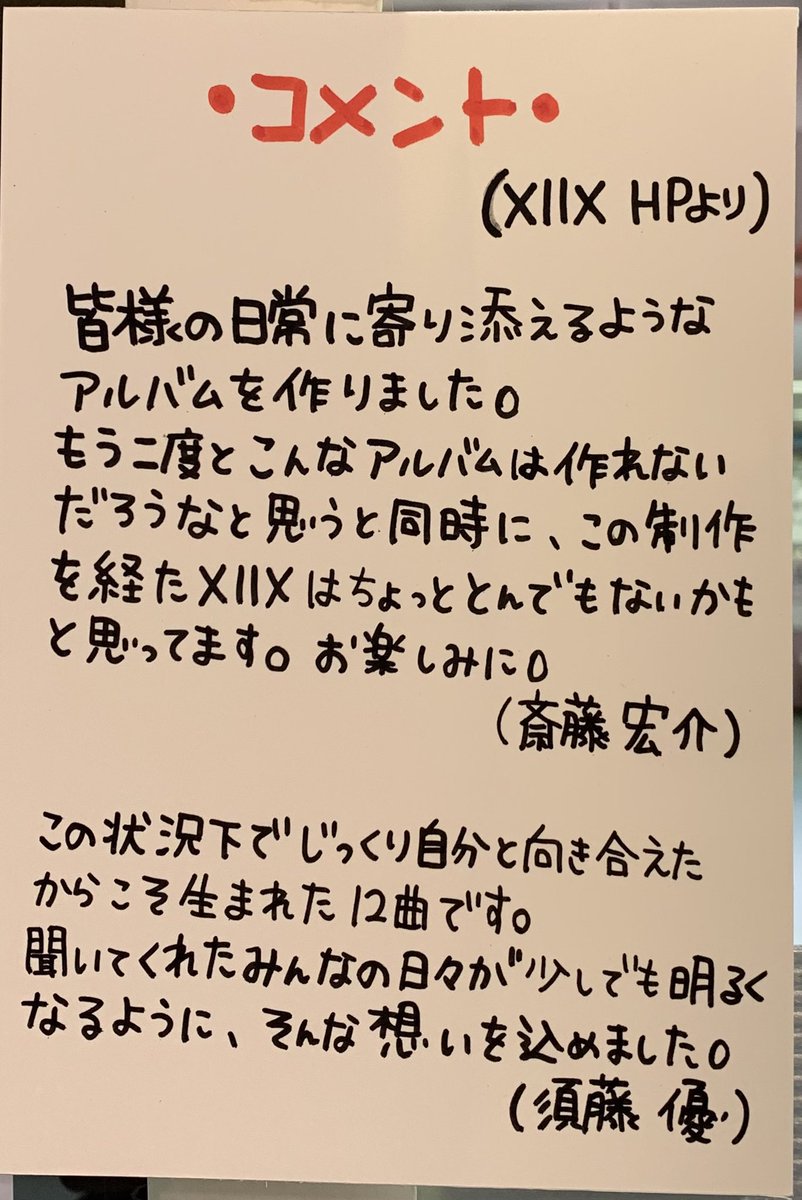 ・コメント・
(XIIX HPより)
皆様の日常に寄り添えるような
アルバムを作りました。
もう二度とこんなアルバムは作れない
だろうなと思うと同時に、この制作
を経たXIIXはちょっととんでもないかも
と思ってます。お楽しみに。
(斎藤 宏介)
この状況下でじっくり自分と向き合えた
からこそ生まれた12曲です。
聞いてくれたみんなの日々が少しでも明るく
なるように、そんな想いを込めました。
(須藤 優)